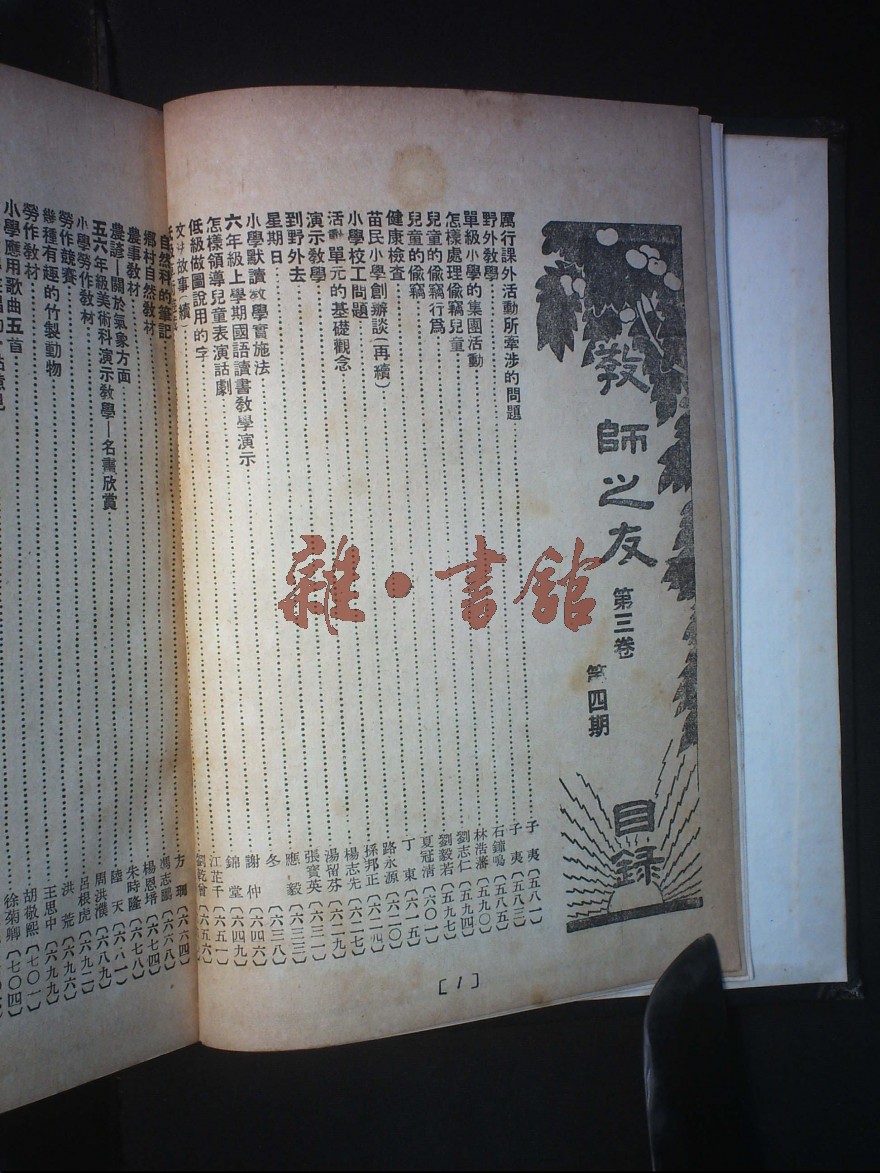 教師之友
第三卷 第四期
目錄
厲行課外活動所牽涉的問題
野外教學
單級小學的集團活動
怎樣處理偸竊兒童
兒童的偸竊行爲
健康檢查
苗民小學創辦談(再續)
小學校工問題
活動單元的基礎觀念
演示教學
到野外去
星期日
小學默讀教學實施法
六年級上學期國語讀書教學演示
怎樣領導兒童表演話劇
低級做圖說用的字
故事(續)
自然科的筆記
鄉村自然教材
農事教材
農諺—關於氣象方面
五六年級美術科演示教學—名畫欣賞
小學勞作教材
勞作競賽
幾種有趣的竹製動物
勞作教材
小學應用歌曲五首
子夷〔五八一〕
子夷〔五八三〕
石鐘鳴〔五八五〕
林浩藩〔五九〇〕
劉志仁〔五九四〕
劉毅若〔五九七〕
夏冠清〔六〇一〕
丁東〔六一五〕
路永源〔六一〇〕
孫邦正〔六二四〕
楊志先〔六二七〕
湯留芬〔六二九〕
張寶英〔六三一〕
應毅〔六三三〕
冬〔六三八〕
謝仲〔六四六〕
錦堂〔六四九〕
江芷千〔六五一〕
劉乾曾〔六五六〕
方珊〔六六四〕
馮志鵬〔六六八〕
楊恩培〔六七四〕
朱時隆〔六七八〕
陸天〔六八一〕
周洪濮〔六八九〕
呂根虎〔六九二〕
洪荒〔六九六〕
王思中〔六九九〕
胡敬熙〔七〇一〕
徐菊卿〔七〇四〕
[1]
雜·書館